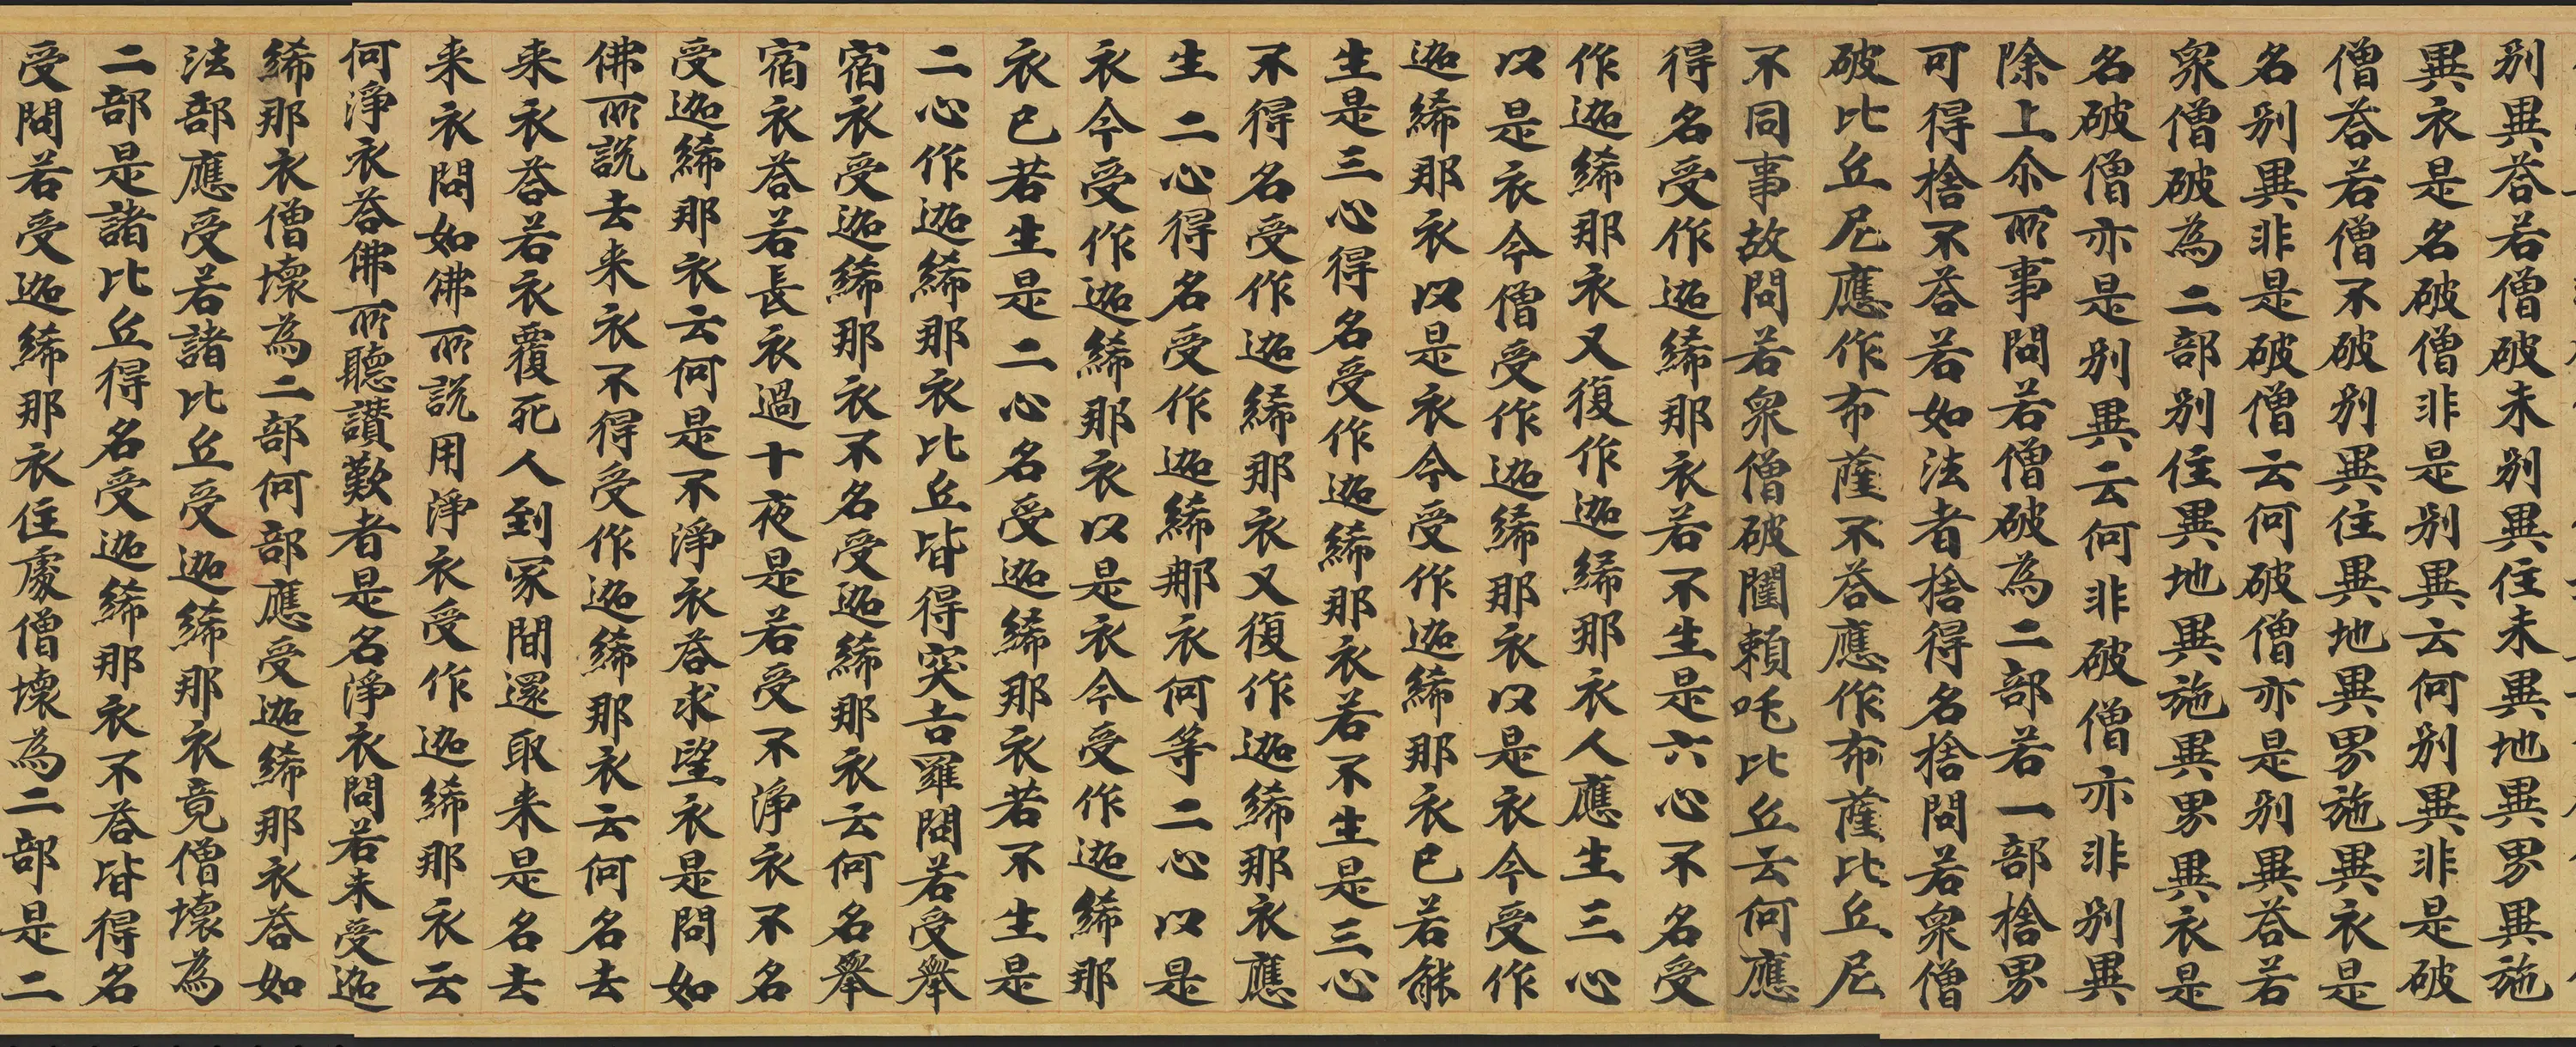 别異荅若僧破未别異住未異地異界異施
異衣是名破僧非是别異云何别異非是破
僧荅若僧不破别異住異地異界施異衣是
名别異非是破僧云何破僧亦是别異荅若
衆僧破為二部别住異地異施異界異衣是
名破僧亦是别異云何非破僧亦非别異
除上尒所事問若僧破為二部若一部捨界
可得捨不荅若如法者捨得名捨問若衆僧
破比丘尼應作布薩不荅應作布薩比丘尼
不同事故問若衆僧破闥賴吒比丘云何應
得名受作迦絺那衣若不生是六心不名受
作迦絺那衣又復作迦絺那衣人應生三心
以是衣今僧受作迦絺那衣以是衣今受作
迦絺那衣以是衣今受作迦絺那衣已若能
生是三心得名受作迦絺那衣若不生是三心
不得名受作迦絺那衣又復作迦絺那衣應
生二心得名受作迦絺那衣何等二心以是
衣今受作迦絺那衣以是衣今受作迦絺那
衣已若生是二心名受迦絺那衣若不生是
二心作迦絺那衣比丘皆得突吉羅問若受舉
宿衣受迦絺那衣不名受迦絺那衣云何名舉
宿衣荅若長衣過十夜是若受不淨衣不名
受迦絺那衣云何是不淨衣荅求望衣是問如
佛所説去来衣不得受作迦絺那衣云何名去
来衣荅若衣覆死人到冢間還取来是名去
来衣問如佛所説用淨衣受作迦絺那衣云
何淨衣荅佛所聽讃歎者是名淨衣問若未受迦
絺那衣僧壞為二部何部應受迦絺那衣荅如
法部應受若諸比丘受迦絺那衣竟僧壞為
二部是諸比丘得名受迦絺那衣不荅皆得名
受問若受迦絺那衣住處僧壞為二部是二